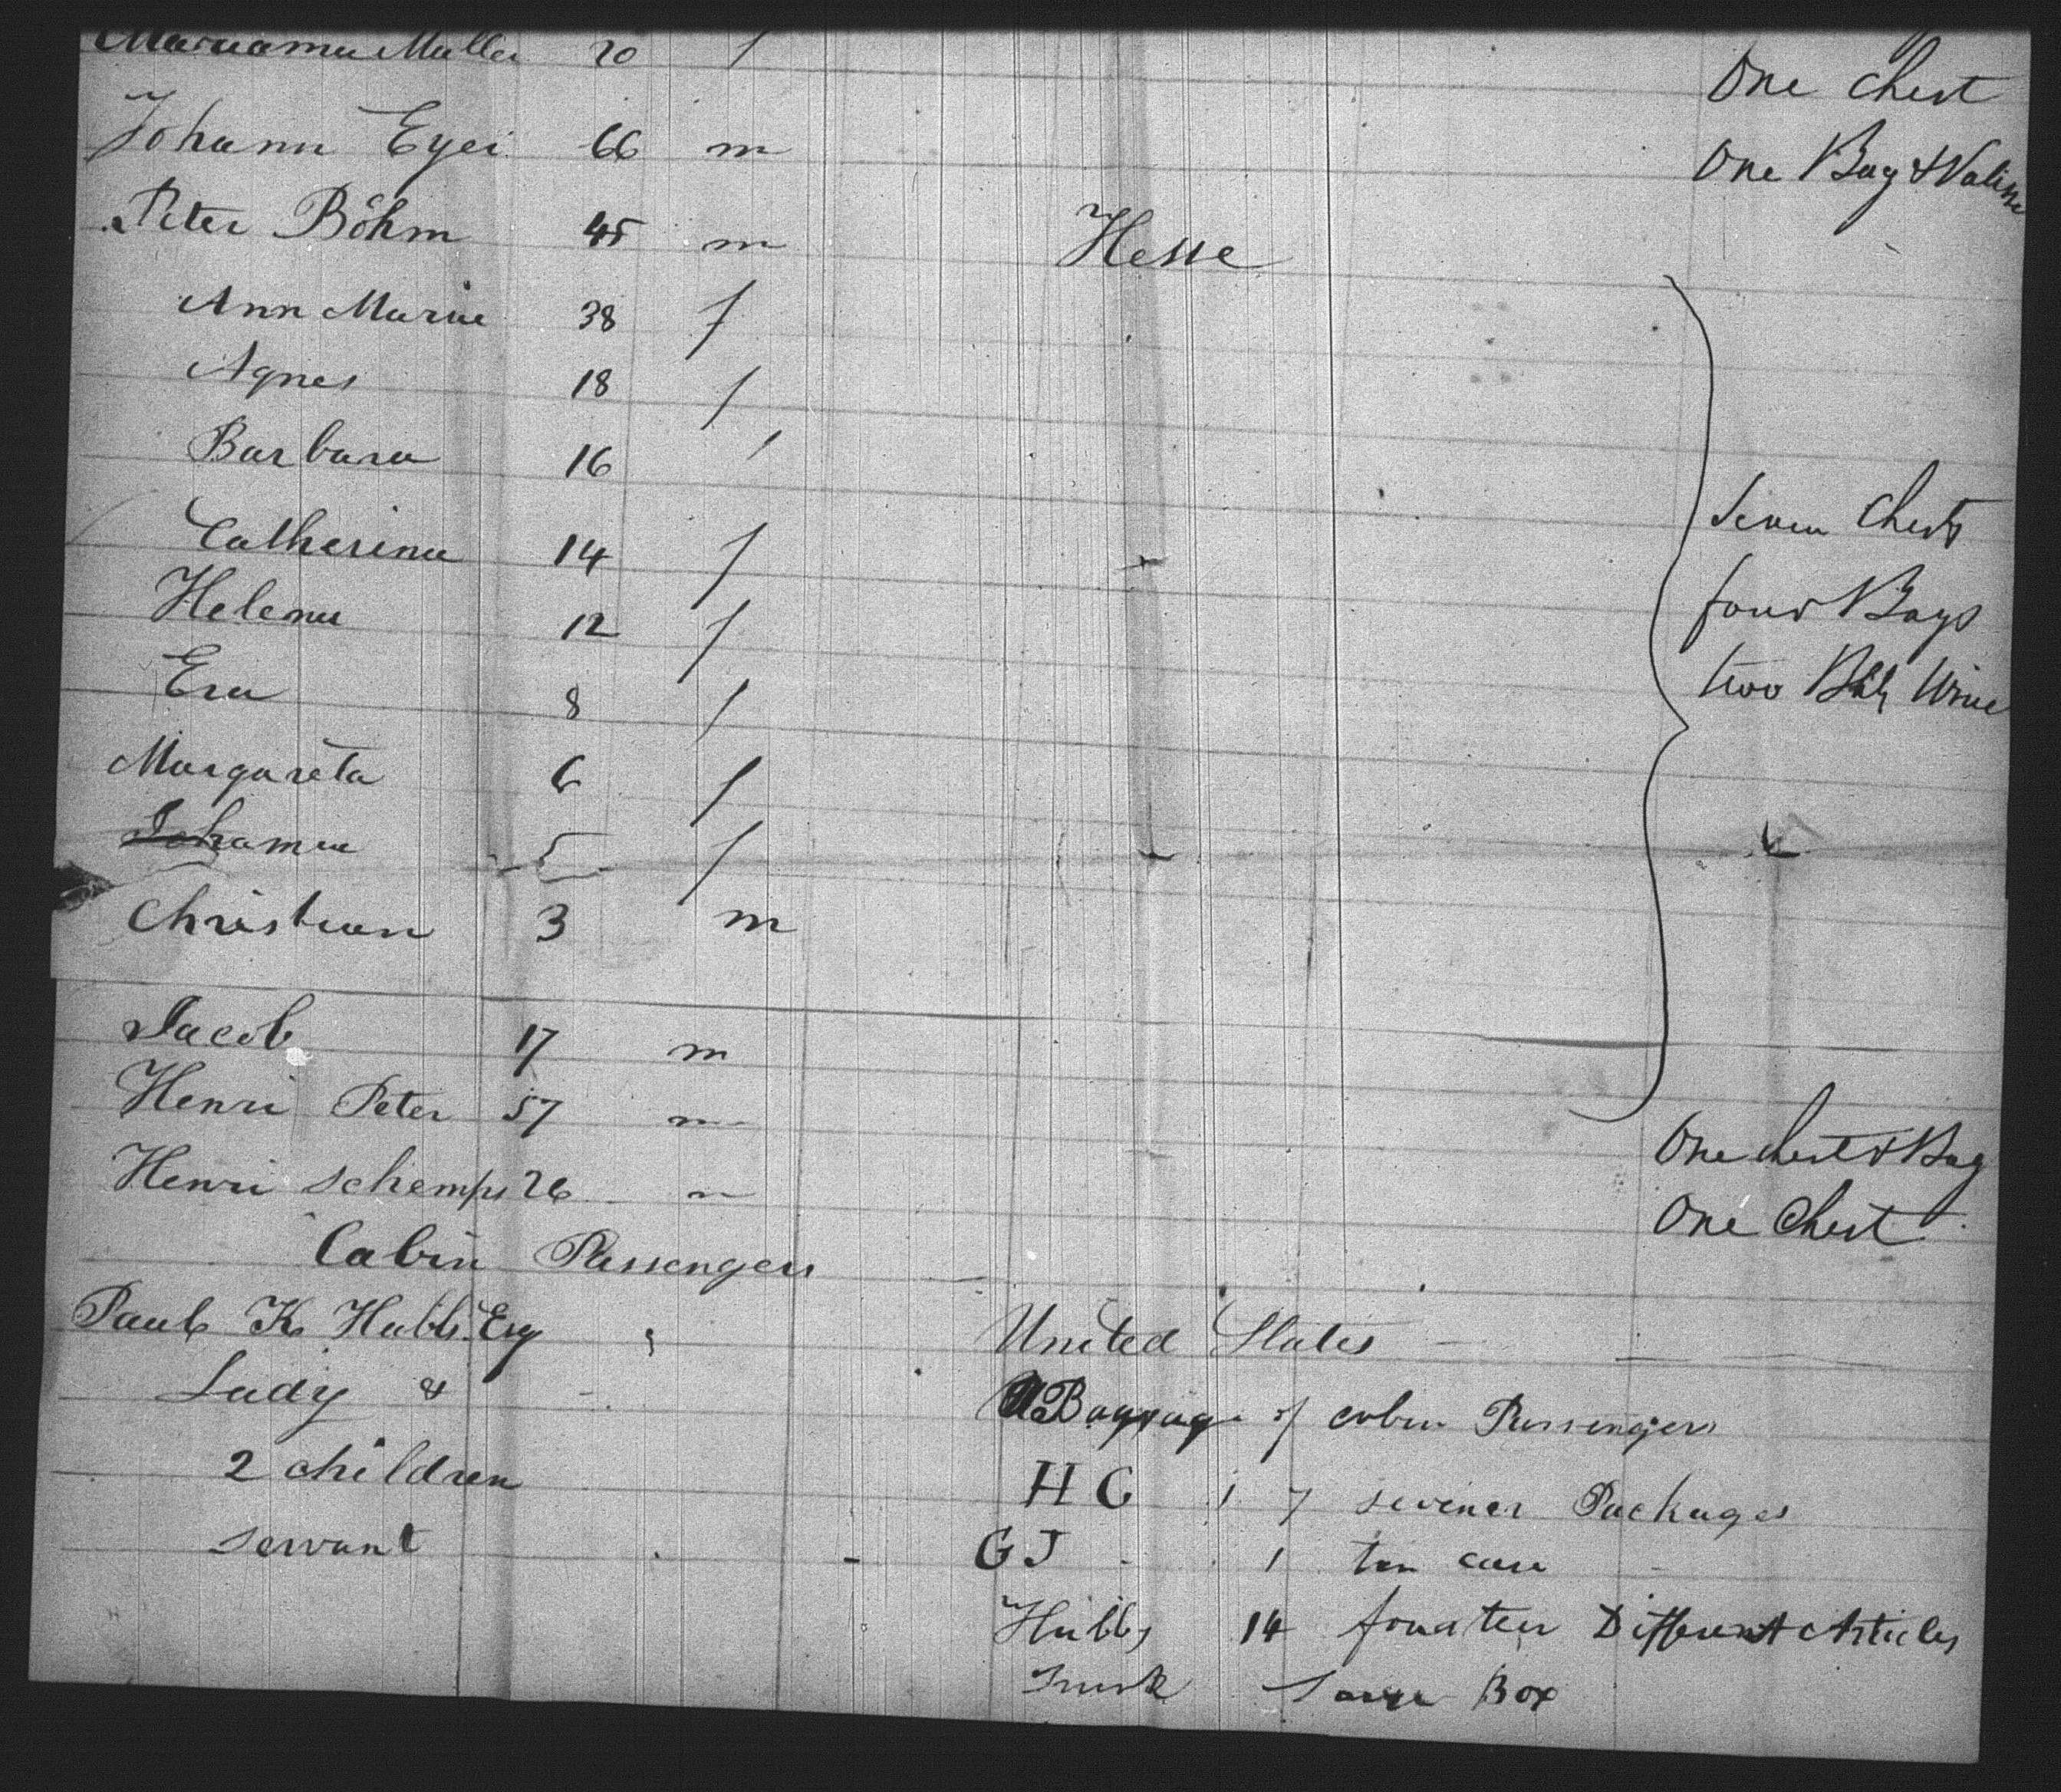 Mariamu Muller 20 f One Chest
Johann Eyei 66 m One Bag & Valise
Peter Böhm 45 m Hesse
Ann Marie 38 f
Agnes 18 f
Barbara 16 '
Catherina 14 f Seven Chests
Helena 12 f four Bags
Eva 8 f two Bbls Wine
Margareta 6 f
Johanna 5 f
Christian 3 m
Jacob 17 m
Henri Peter 57 m One Chest & Bag
Henri Schemps 26 m One Chest
Cabin Passengers
Paul K Hubbs Esq United States
Lady & Baggage of cabin Passengers
2 children H G 7 sevener Packages
servant G J 1 tin case
Hubbs 14 fourteen Different Articles
Box